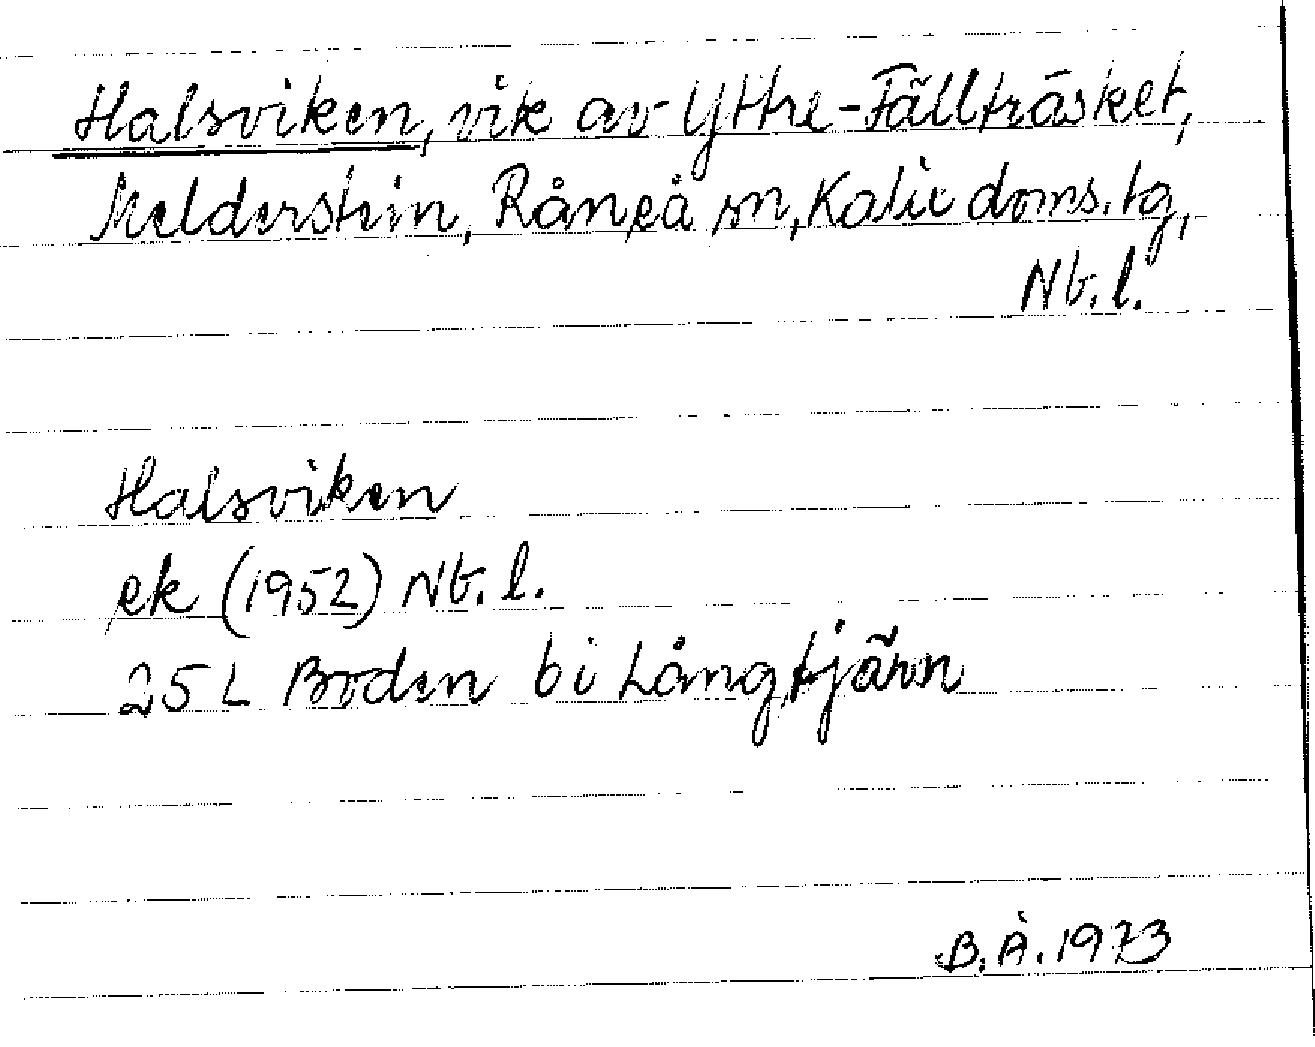 Halsviken, vik av Yttre-Fällträsket,
Melderstein, Råneå sn, Kalix doms. tg,
Nb. l.
Halsviken
ek (1952) Nb. l.
25 L Boden bi Långtjärn
B. Å. 1973